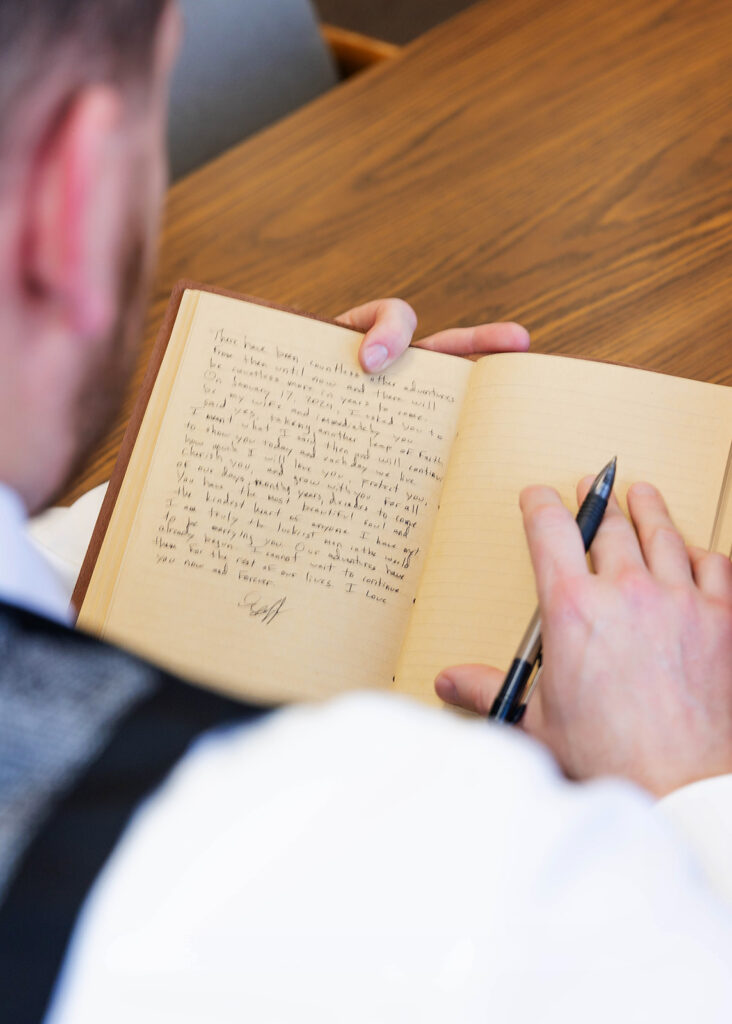 There have been countless other adventures
from then until now and there will
be countless more in years to come.
On January 17, 2021, I asked you to
be my wife and immediately you
said yes, taking another leap of faith.
I meant what I said then and will continue
to show you today and each day we live
how much I will love you, protect you,
cherish you, and grow with you for all
of our days, months, years, decades to come.
You have the most beautiful soul and
the kindest heart of anyone I have met.
I am truly the luckiest man in the world
to be marrying you. Our adventures have
already begun. I cannot wait to continue
them for the rest of our lives. I love
you now and forever.